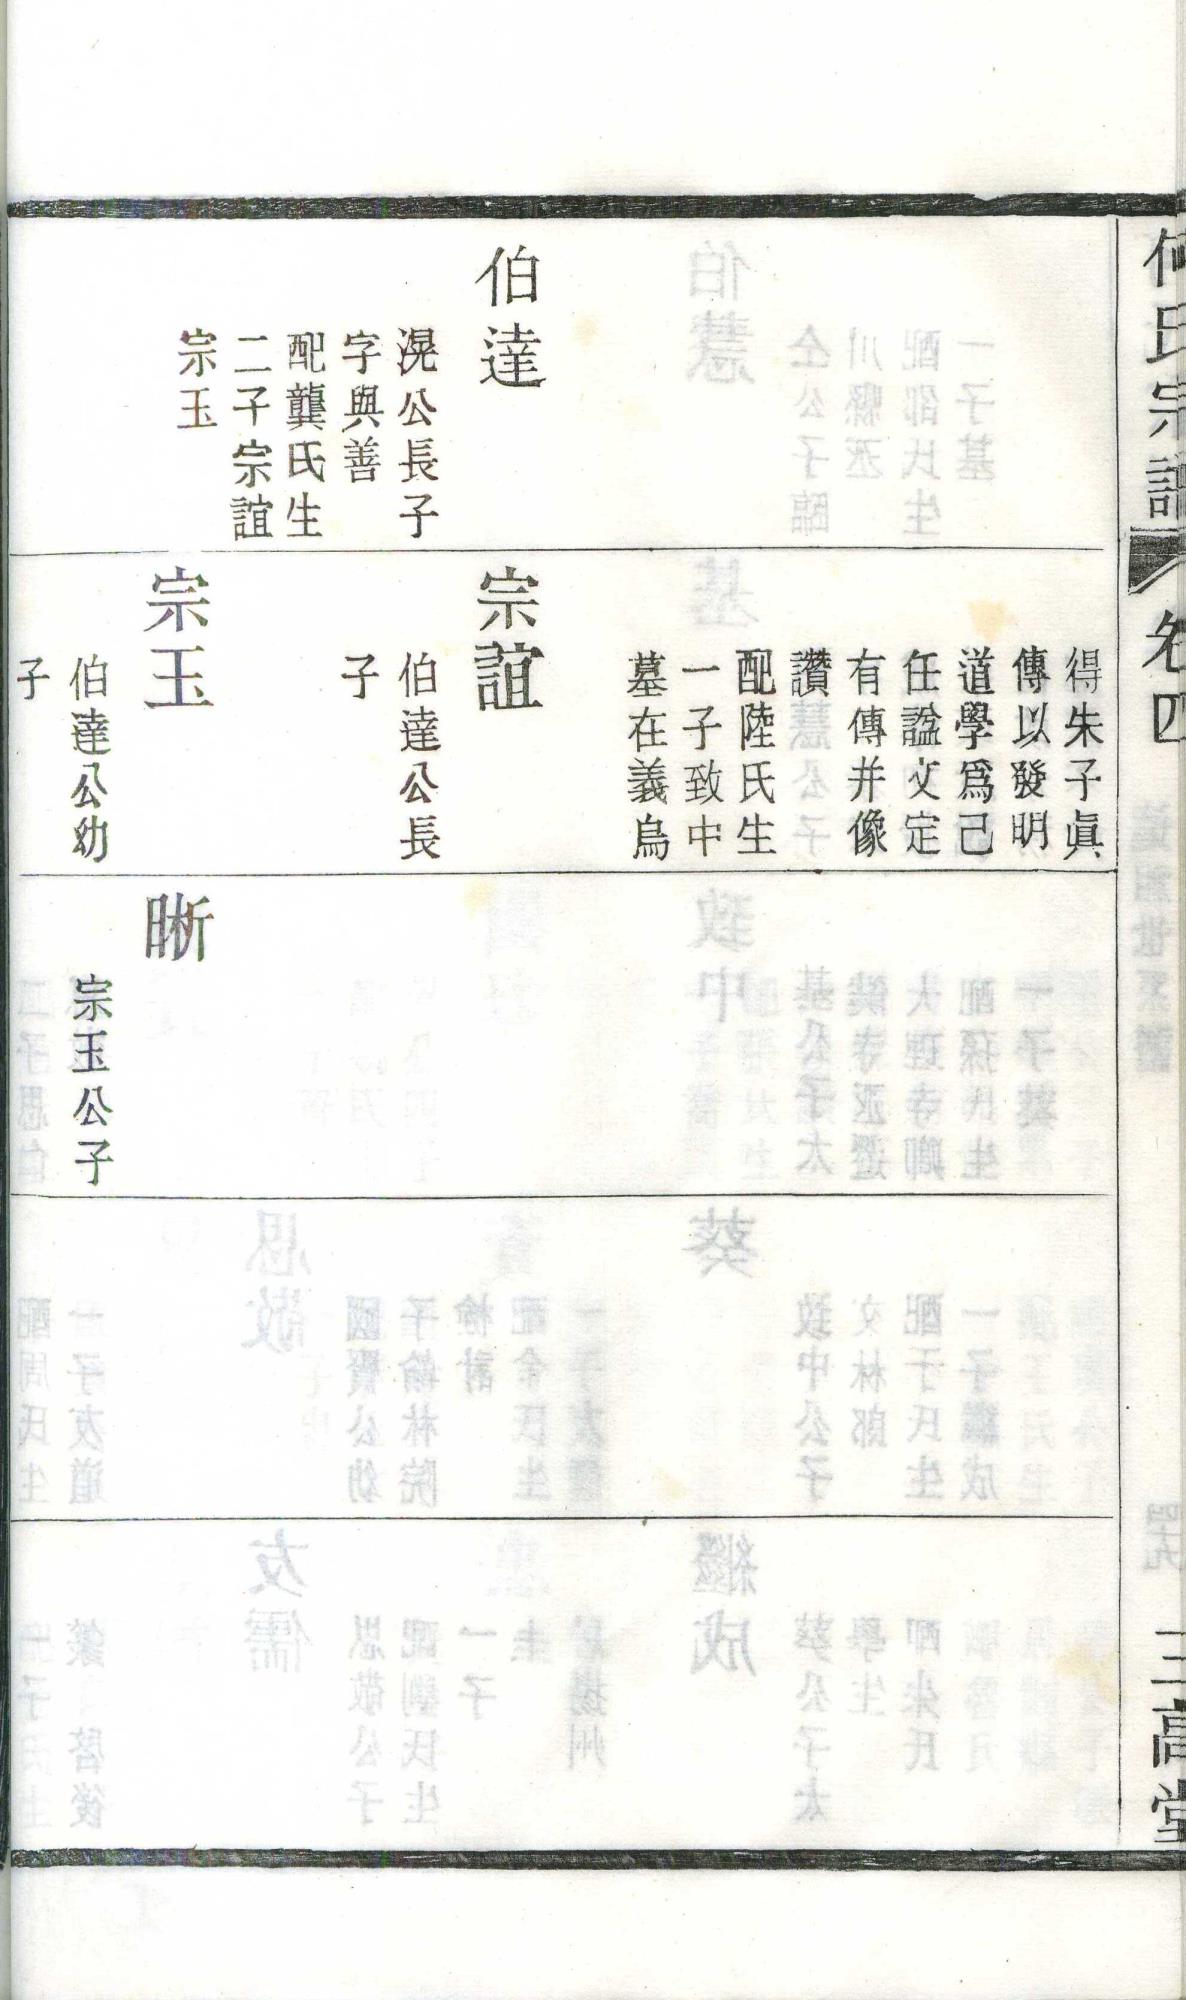 何氏宗譜
卷四
三高堂
伯達
滉公長子
字與善
配龔氏生
二子宗誼
宗玉
得朱子眞
傳以發明
道學爲己
任謚文定
有傳并像
讚
配陸氏生
一子致中
墓在義烏
宗誼
伯達公長
子
宗玉
伯達公幼
子
晰
宗玉公子